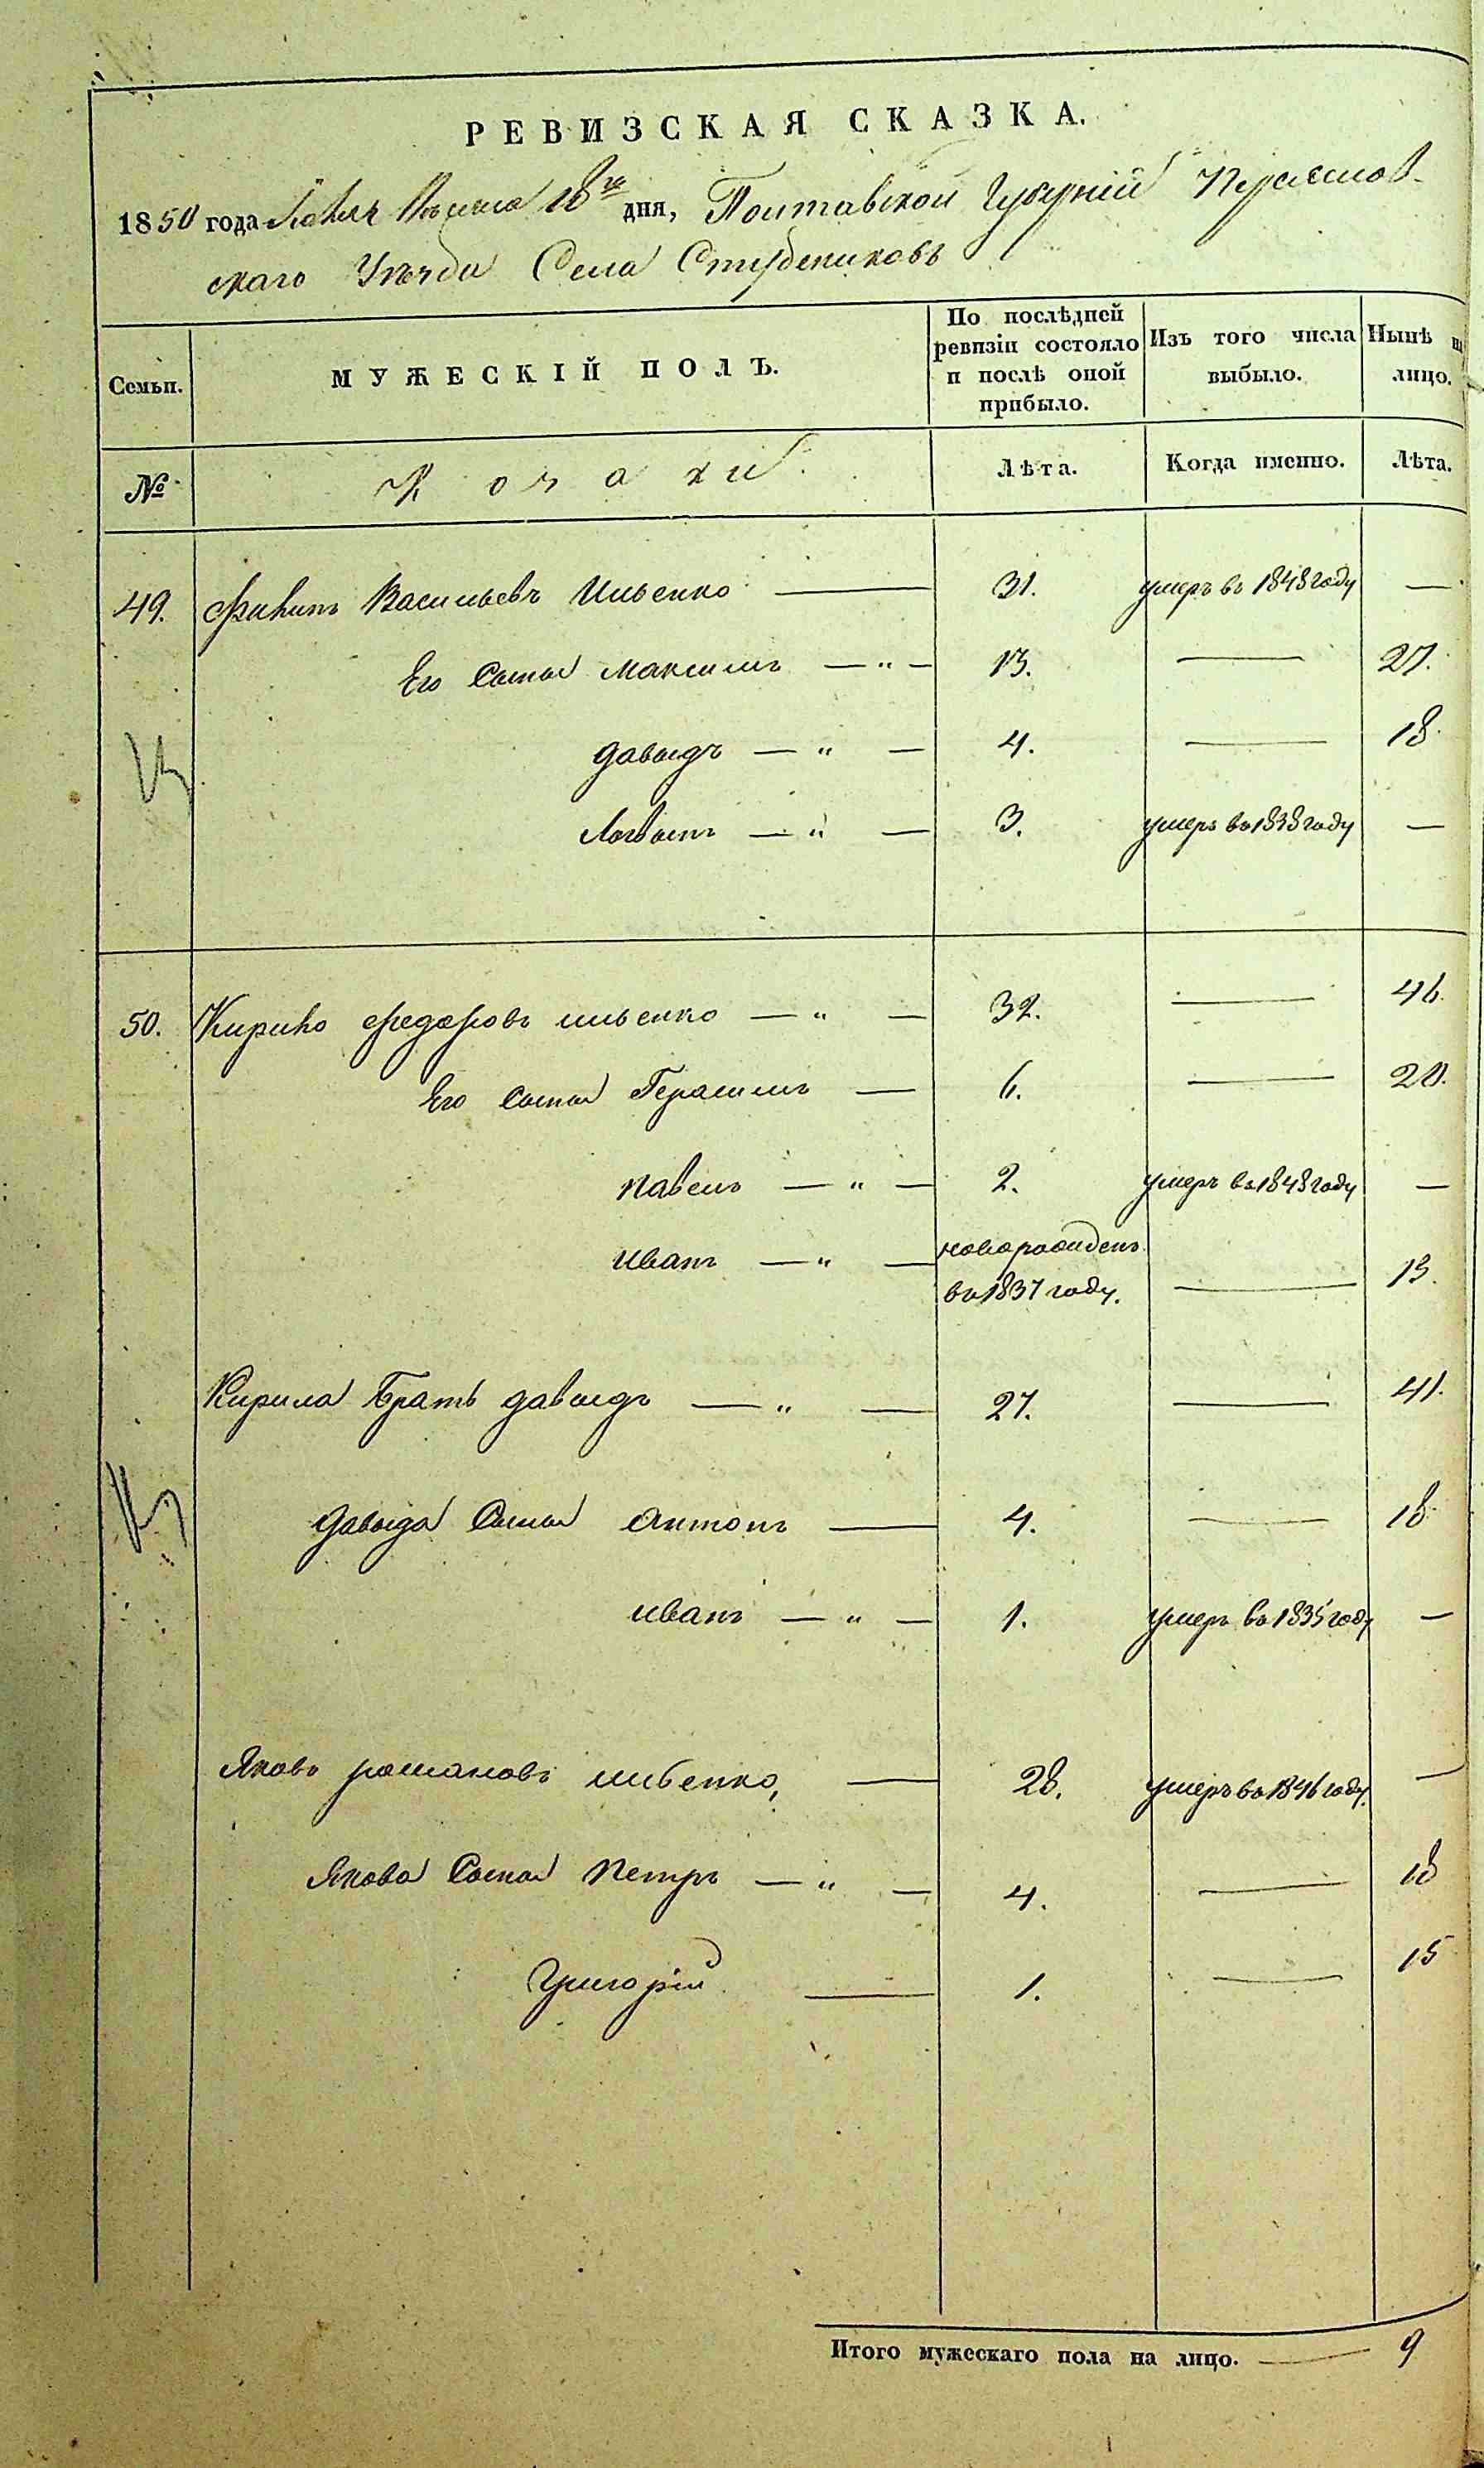 РЕВИЗСКАЯ СКАЗКА.
1850 года 18го дня, Полтавской Губерніи Переяслов-
скаго Уѣзда Села Студениковъ
Семьи. МУЖЕСКІЙ ПОЛЪ. По послѣдней ревизіи состояло и послѣ оной прибыло. Изъ того числа выбыло. Нынѣ на лицо.
№ Козаки Лѣта. Когда именно. Лѣта.
49. Васильевъ Ильенко — 31. умеръ въ 1848 году —
Его Сынъ Максимъ — " — 13. — 27.
Давыдъ — " — 4. — 18.
Логвинъ — " — 3. умеръ въ 1838 году —
50. Кирило Федоровъ Ильенко — " — 32. — 46.
Его Сынъ Герасимъ — 6. — 20.
Павелъ — " — 2. умеръ въ 1848 году —
Иванъ — " — новорожденъ въ 1837 году. — 13.
Кирила Братъ Давыдъ — " — 27. — 41.
Давыда Сынъ Антонъ — 4. — 18
Иванъ — " — 1. умеръ въ 1835 году —
Яковъ Романовъ Ильенко, — 28. умеръ въ 1846 году. —
Якова Сынъ Петръ — " — 4. — 18
Григорій — 1. — 15
Итого мужескаго пола на лицо. — 9